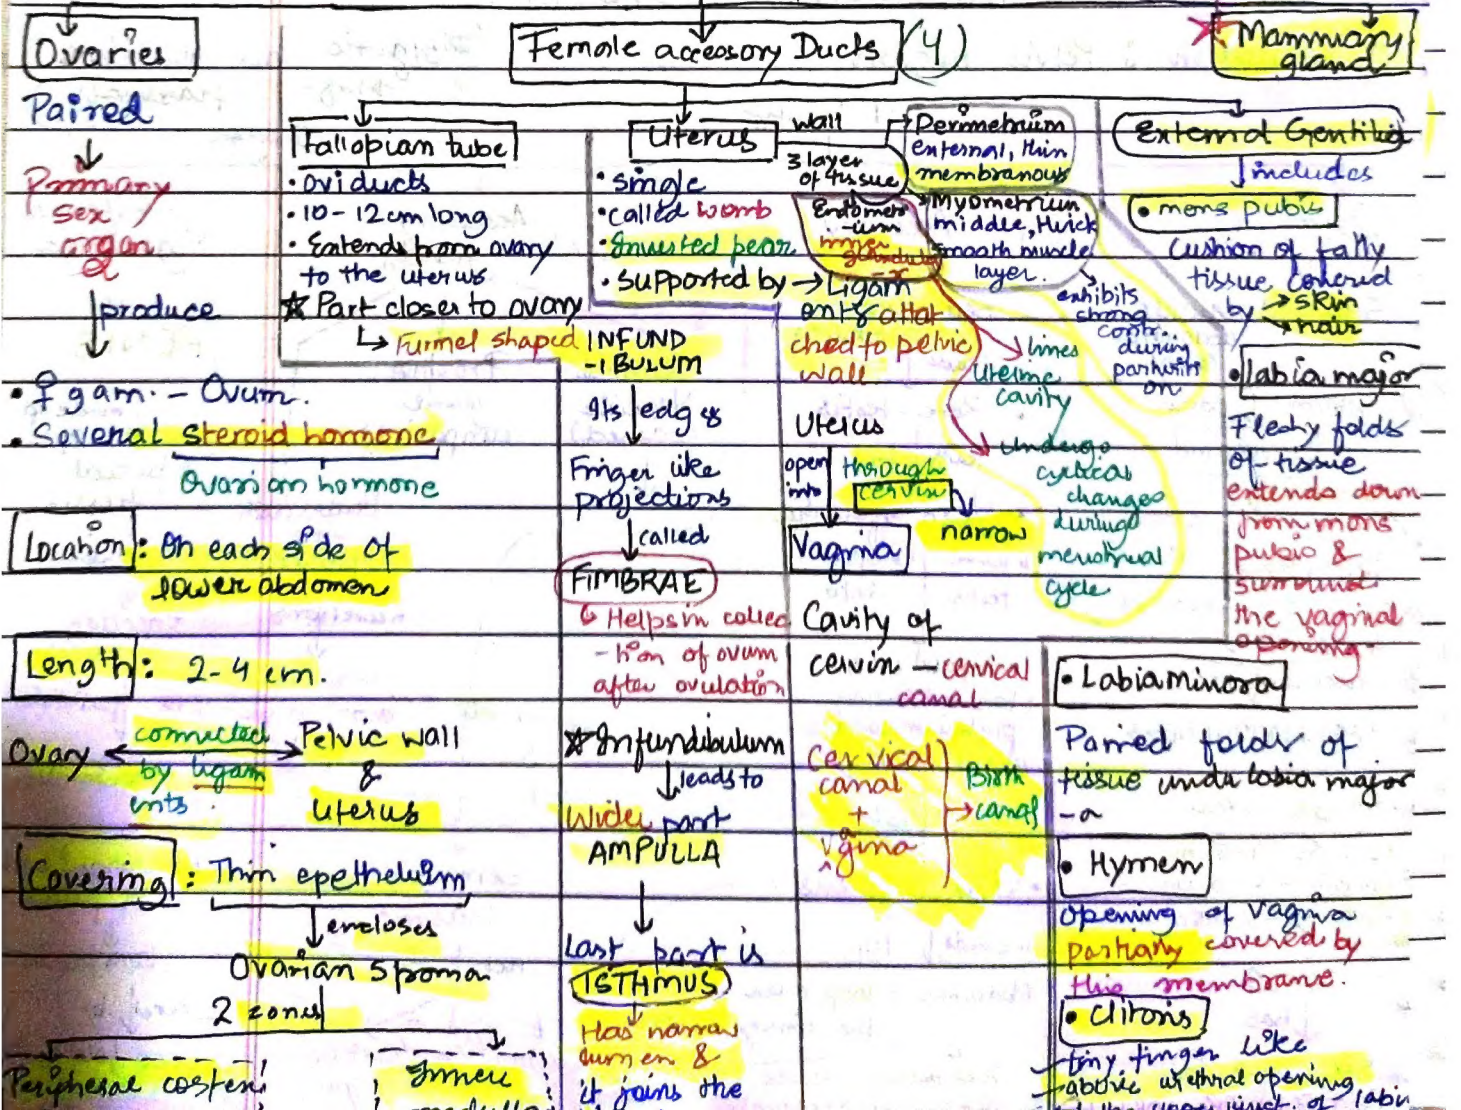 Ovaries
Paired
Primary
sex
organ
produce
• ♀ gam. - Ovum.
• Several steroid hormone
Ovarian hormone
Location: On each side of
lower abdomen
Length: 2-4 cm.
Ovary connected Pelvic wall
by ligam &
ents. uterus
Covering: Thin epethelium
encloses
Ovarian Sroma
2 zones
Peripheral
Inner
Female accesory Ducts (4)
Fallopian tube
• oviducts
• 10-12cm long
• Extends from ovary
to the uterus
☆ Part closer to ovary
↳ Funnel shaped INFUND
-IBULUM
Its edges
Finger like
projections
called
FIMBRAE
↳ Helps in collec
-tion of ovum
after ovulation
☆ Infundibulum
leads to
Wider part
AMPULLA
Last part is
ISTHMUS
Has narrow
lumen &
it joins the
Uterus
• single
• called womb
• Inverted pear
• supported by → Ligam
ents attat
ched to pelvic
wall
wall
3 layer
of tissue
Perimetrium
external, thin
membranous
Myometrium
middle, thick
smooth muscle
layer.
exhibits
strong
contr.
during
parturiti
on
Endometr
-ium
inner
lines
uterine
cavity
undergo
cyclical
changes
during
menstrual
cycle
Uterus
open through
into cervix
narrow
Vagina
Cavity of
cervix - cervical
canal
Cervical
canal
+
vagina
Birth
canal
Mammary
gland
External Gentilia
includes
• mons pubis
Cushion of fatty
tissue covered
by → skin
→ hair
• labia major
Fleshy folds
of tissue
extends down
from mons
pubis &
surround
the vaginal
opening.
• Labia minora
Paired folds of
tissue under labia major
-a
• Hymen
opening of vagina
partially covered by
this membrane.
• Clitoris
tiny finger like
above urethral opening